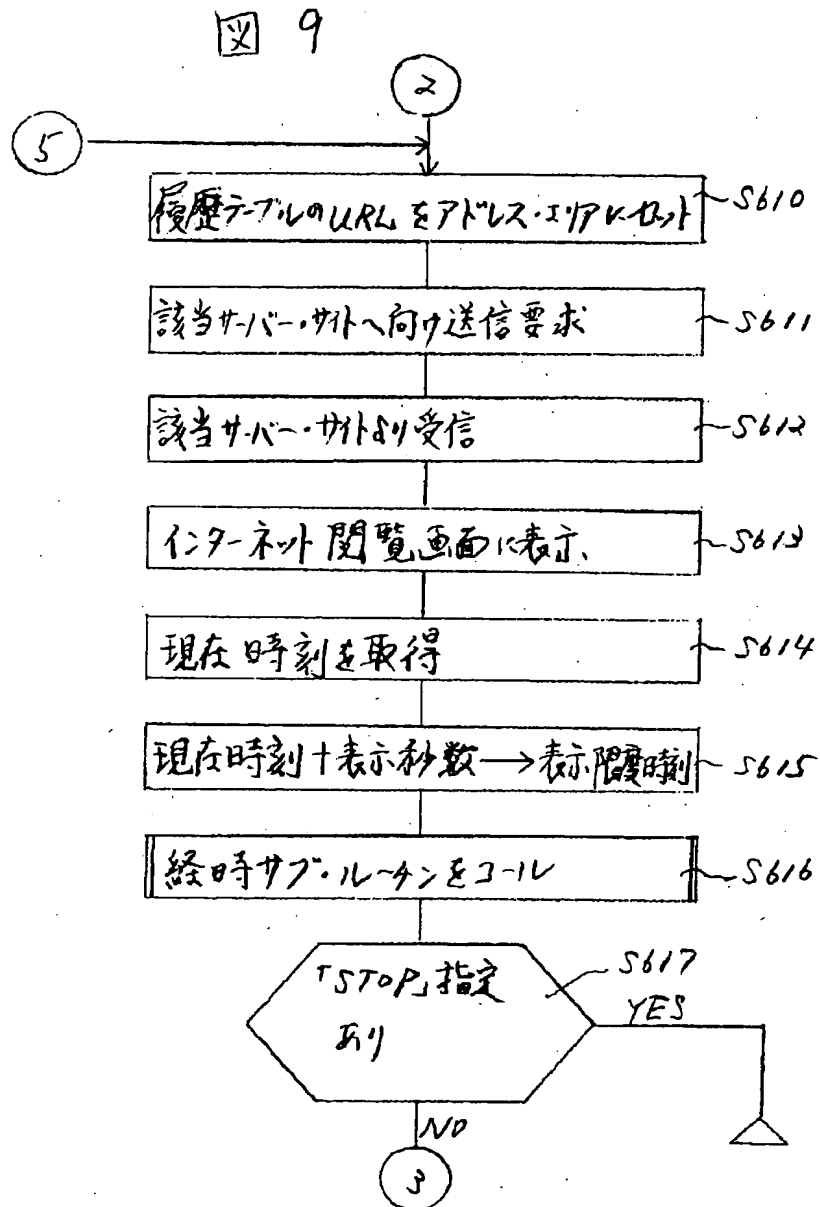 図 9
2
5
履歴テーブルのURLをアドレス・エリアにセット
S610
該当サーバー・サイトへ向け送信要求
S611
該当サーバー・サイトより受信
S612
インターネット閲覧画面に表示
S613
現在時刻を取得
S614
現在時刻+表示秒数→表示限度時刻
S615
経時サブ・ルーチンをコール
S616
「STOP」指定
あり
S617
YES
NO
3